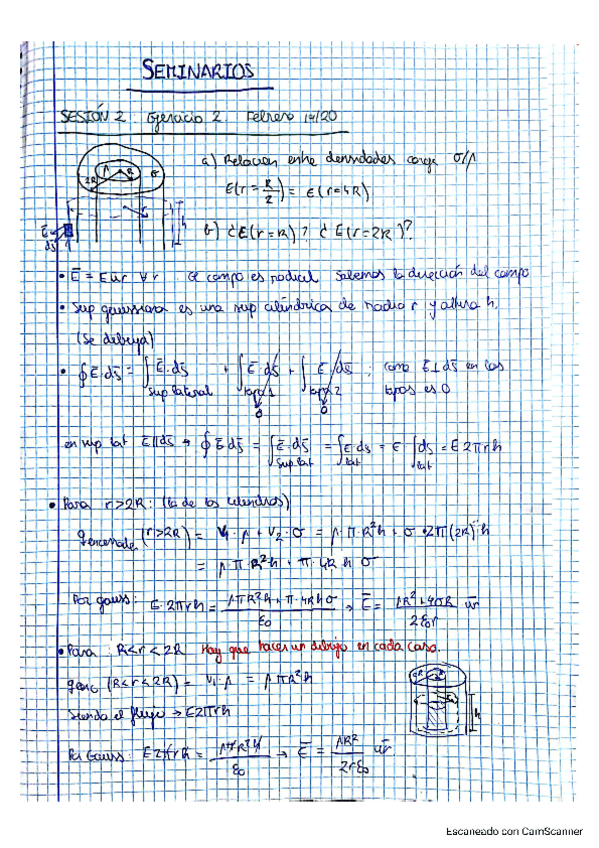 SEMINARIOS
SESIÓN 2. Ejercicio 2. Febrero 14/20
a) Relacion entre densidades carga σ/ρ
E(r = R/2) = E(r=4R)
b) ¿E(r=R)? ¿E(r=2R)?
ρ R 2R σ h
E dS
• E = E ur ∀ r. El campo es radial. Sabemos la dirección del campo
• Sup gaussiana es una sup cilíndrica de radio r y altura h.
(Se dibuja)
• ∮ E·ds = ∫ E·ds + ∫ E·ds + ∫ E·ds ; como E⊥ds en las
sup lateral tapa 1 tapa 2 tapas es 0
0 0
en sup lat E∥ds → ∮ E ds = ∫ E·ds = ∫ E ds = E ∫ ds = E 2πrh
sup lat lat lat
• Para r>2R: (la de los cilindros)
(r>2R) = V1·ρ + V2·σ = ρ·π·R²h + σ·2π(2R)·h
= ρ·π·R²h + π·4Rhσ
Por gauss: E·2πrh = ρπR²h + π·4Rhσ / ε0 → E = ρR² + 4σR / 2ε0r ur
• Para: R<r<2R Hay que hacer un dibujo en cada caso.
(R<r<2R) = V1·ρ = ρπR²h
Siendo el flujo → E2πrh
Por Gauss: E2πrh = ρπR²h / ε0 → E = ρR² / 2rε0 ur
2R R h
Escaneado con CamScanner